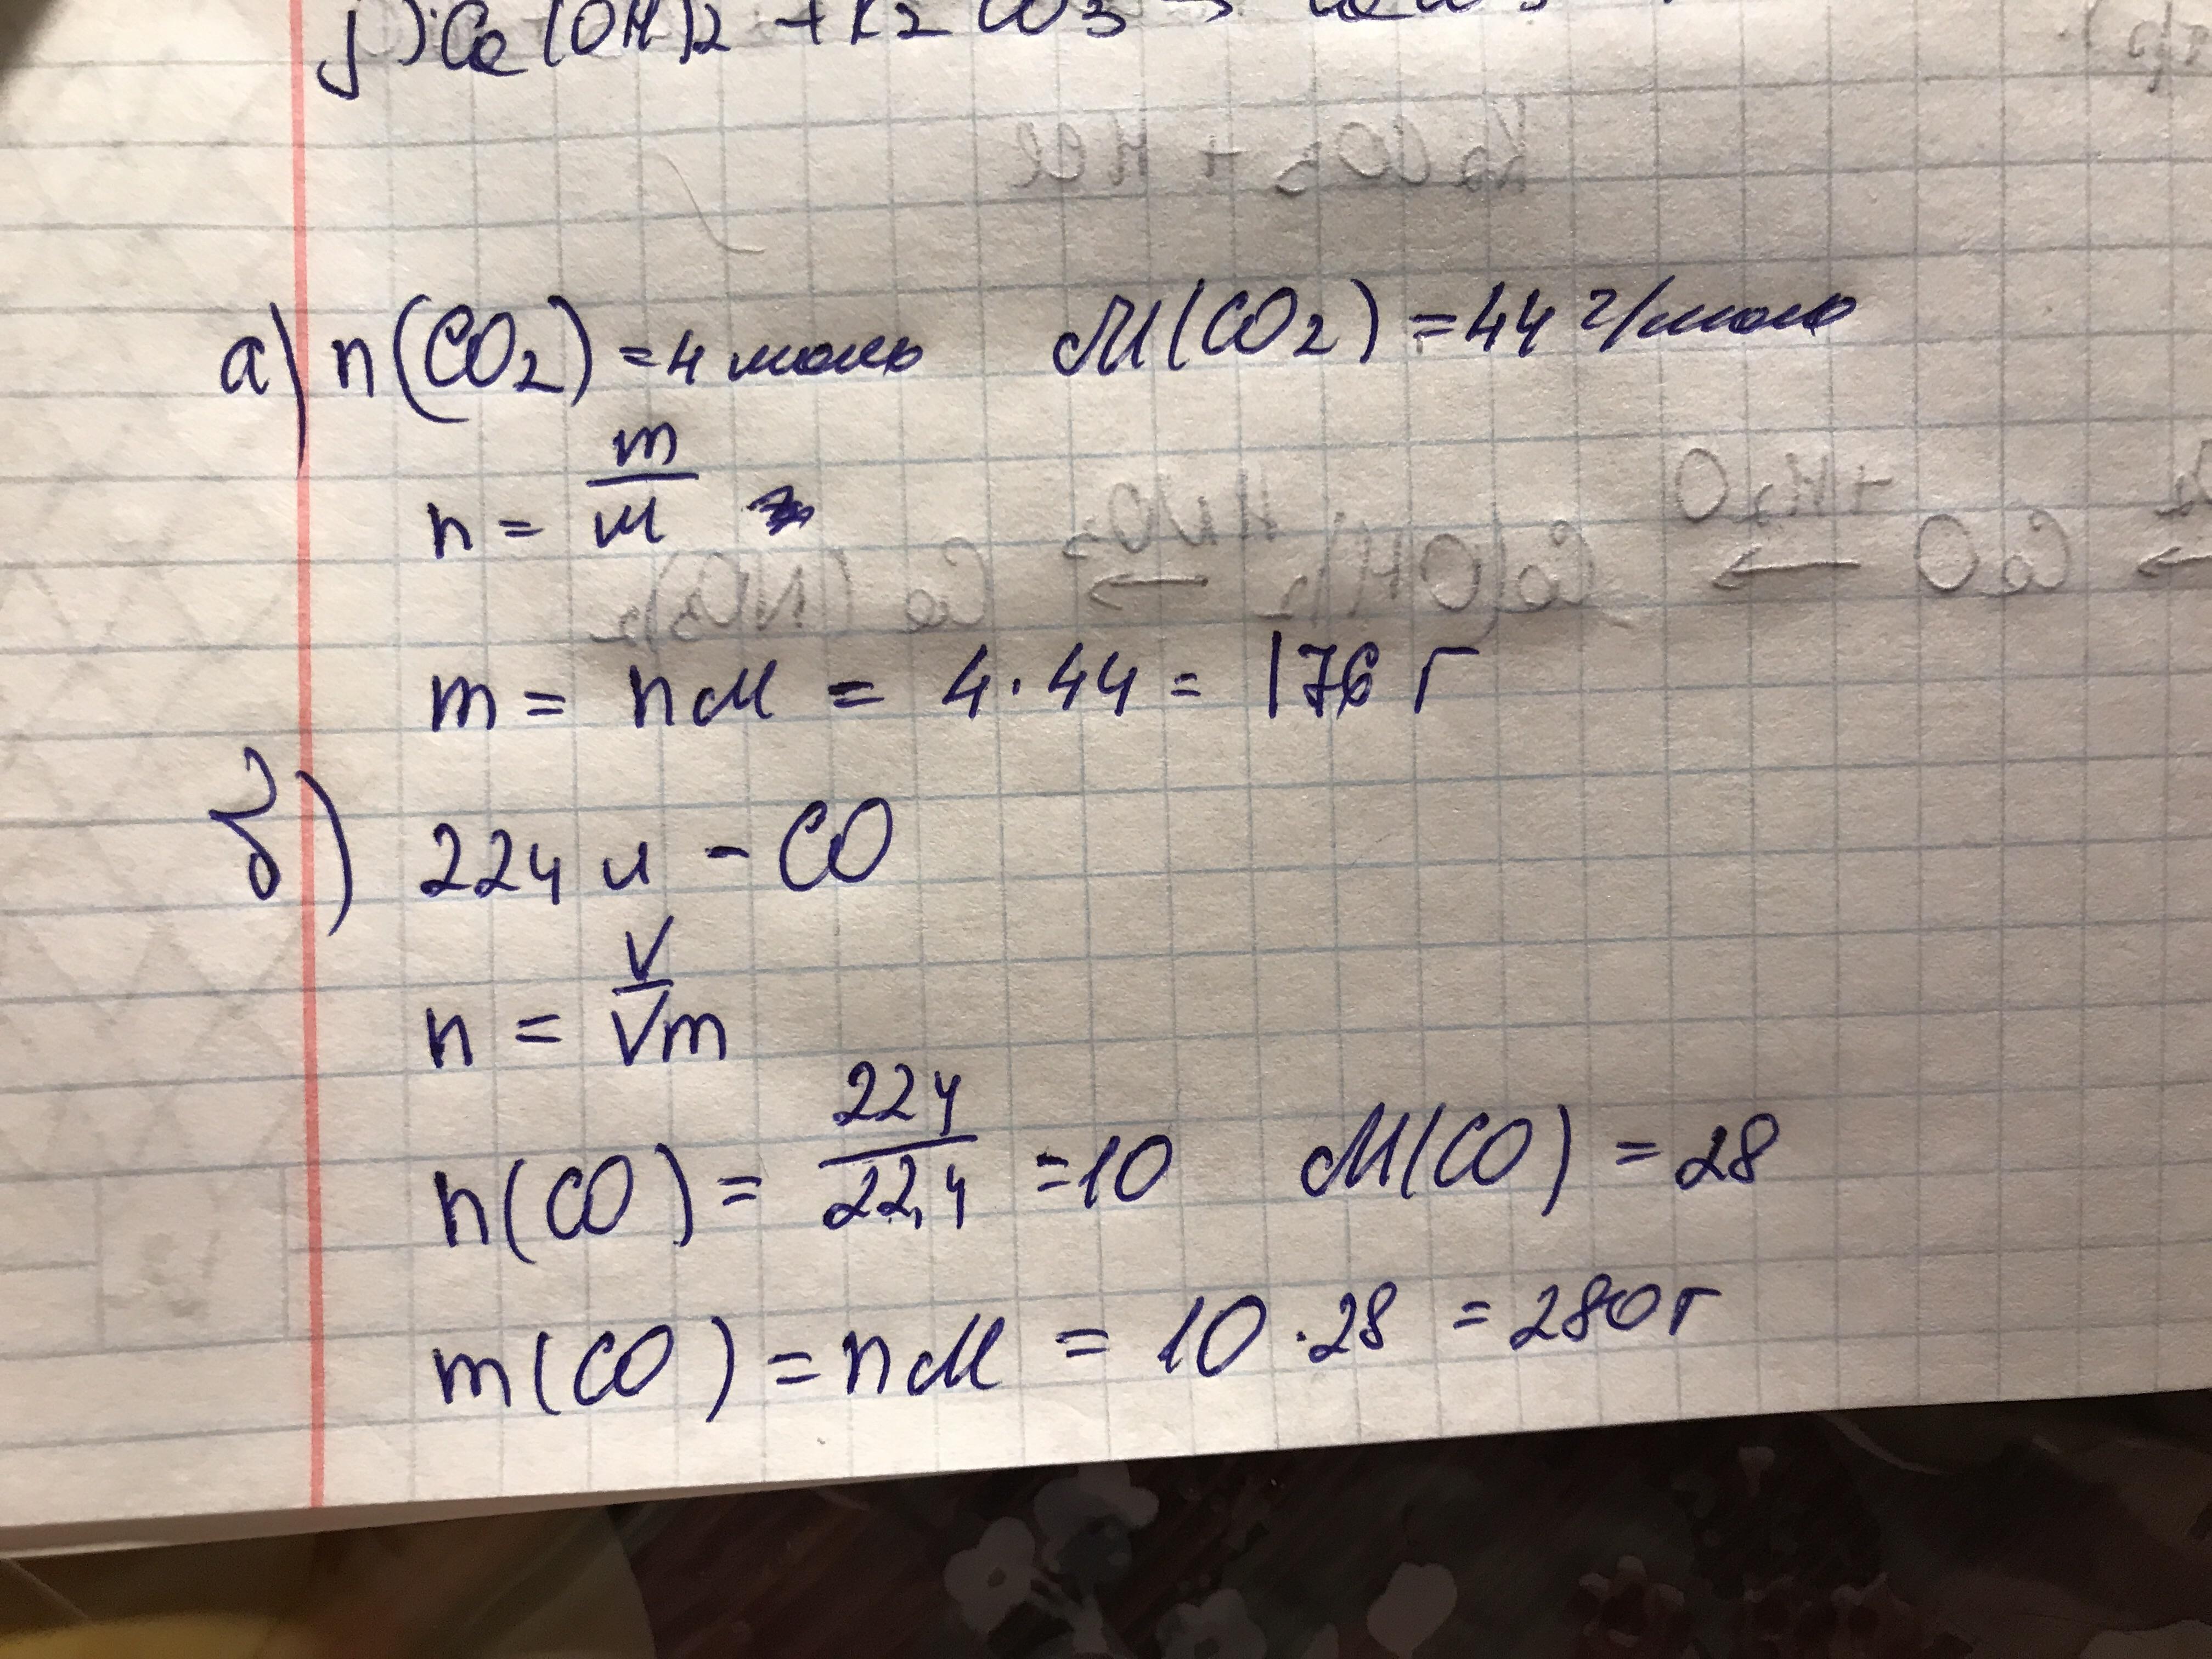 Ca(OH)2 + K2CO3 →
а) n(CO2) = 4 моль M(CO2) = 44 г/моль
n = m/M
m = nM = 4·44 = 176 г
б) 224 л - CO
n = V/Vm
n(CO) = 224/22,4 = 10 M(CO) = 28
m(CO) = nM = 10·28 = 280 г